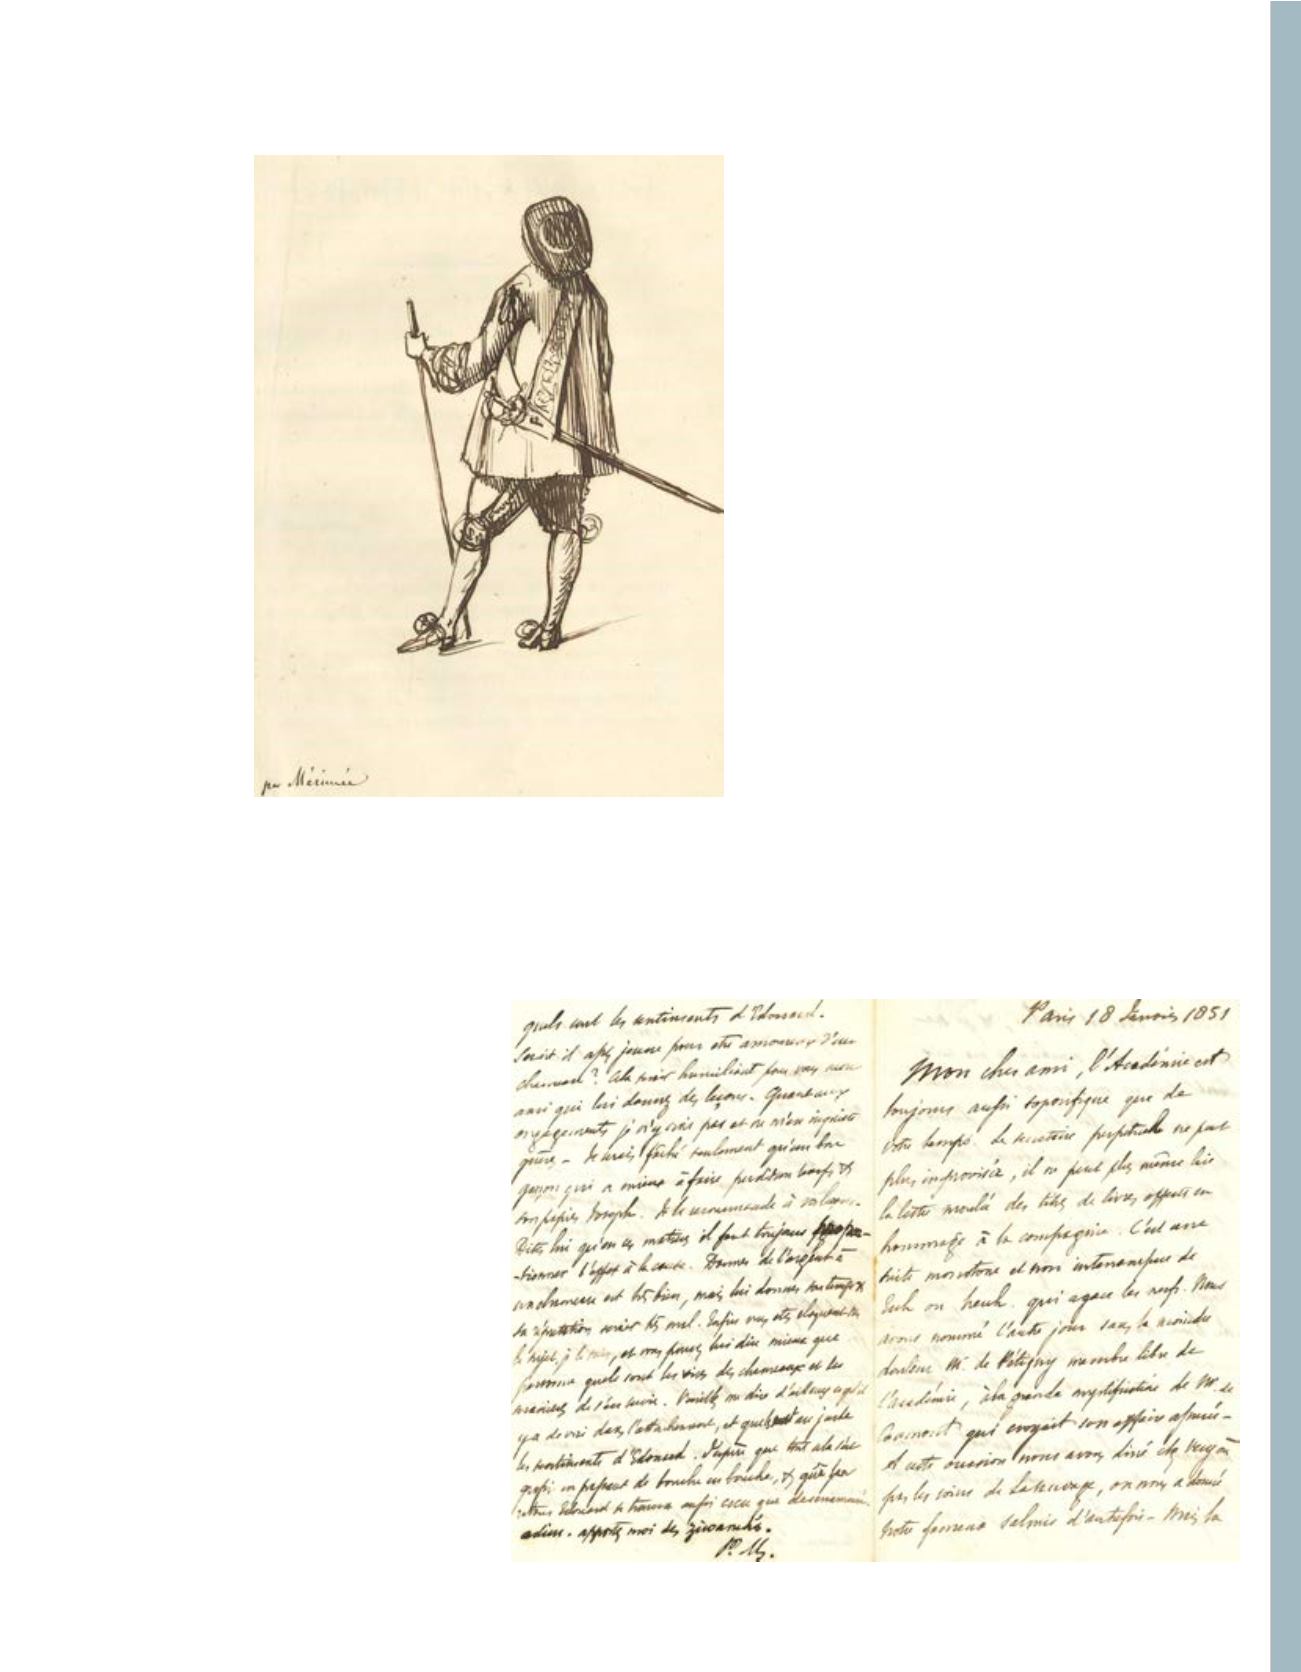 par Mérimée
quels sont les sentiments d'Edouard.
Serait il assez jeune pour etre amoureux d'une
chameau? Cela serait humiliant pour vous mon
ami qui lui donnez des leçons. Quant aux
engagements je n'y crois pas et ne m'en inquiete
guère - Je serais faché seulement qu'un bon
garçon qui a mieux à faire perdit son temps &
son papier Joseph. Je le recommande à vos leçons.
Dites lui qu'en ces matières il faut toujours propor-
-tionner l'effort à la cause. Donner de l'argent à
un chameau est très bien, mais lui donner son temps &
sa réputation serait très mal. Enfin vous etes eloquent sur
le sujet, je le sais, et vous pouvez lui dire mieux que
personne quels sont les vices des chameaux et les
manières de s'en servir. Veuillez me dire d'ailleurs ce qu'il
y a de vrai dans l'attachement, et quels sont au juste
les sentiments d'Edouard. J'espère que tout cela s'est
grossi en passant de bouche en bouche, & qu'à son
retour Edouard se trouvera aussi
adieu. apportez moi des
Pr. M.
Paris 18 Janvier 1851
Mon cher ami, l'Académie est
toujours aussi soporifique que de
votre temps. Le secrétaire perpétuel ne peut
plus improviser, il ne peut plus même lire
la lettre moulée des titres de livres offerts en
hommage à la compagnie. C'est une
suite monotone et non interrompue de
Euh ou heuh. qui agace les nerfs. Nous
avons nommé l'autre jour sans la moindre
douleur M. de Pétigny membre libre de
l'académie, à la grande mystification de M. de
Caumont qui croyait son affaire assurée-
A cette occasion nous avons diné chez
par les soins de on nous a donné
notre fameux salmis d'autrefois - Mais la